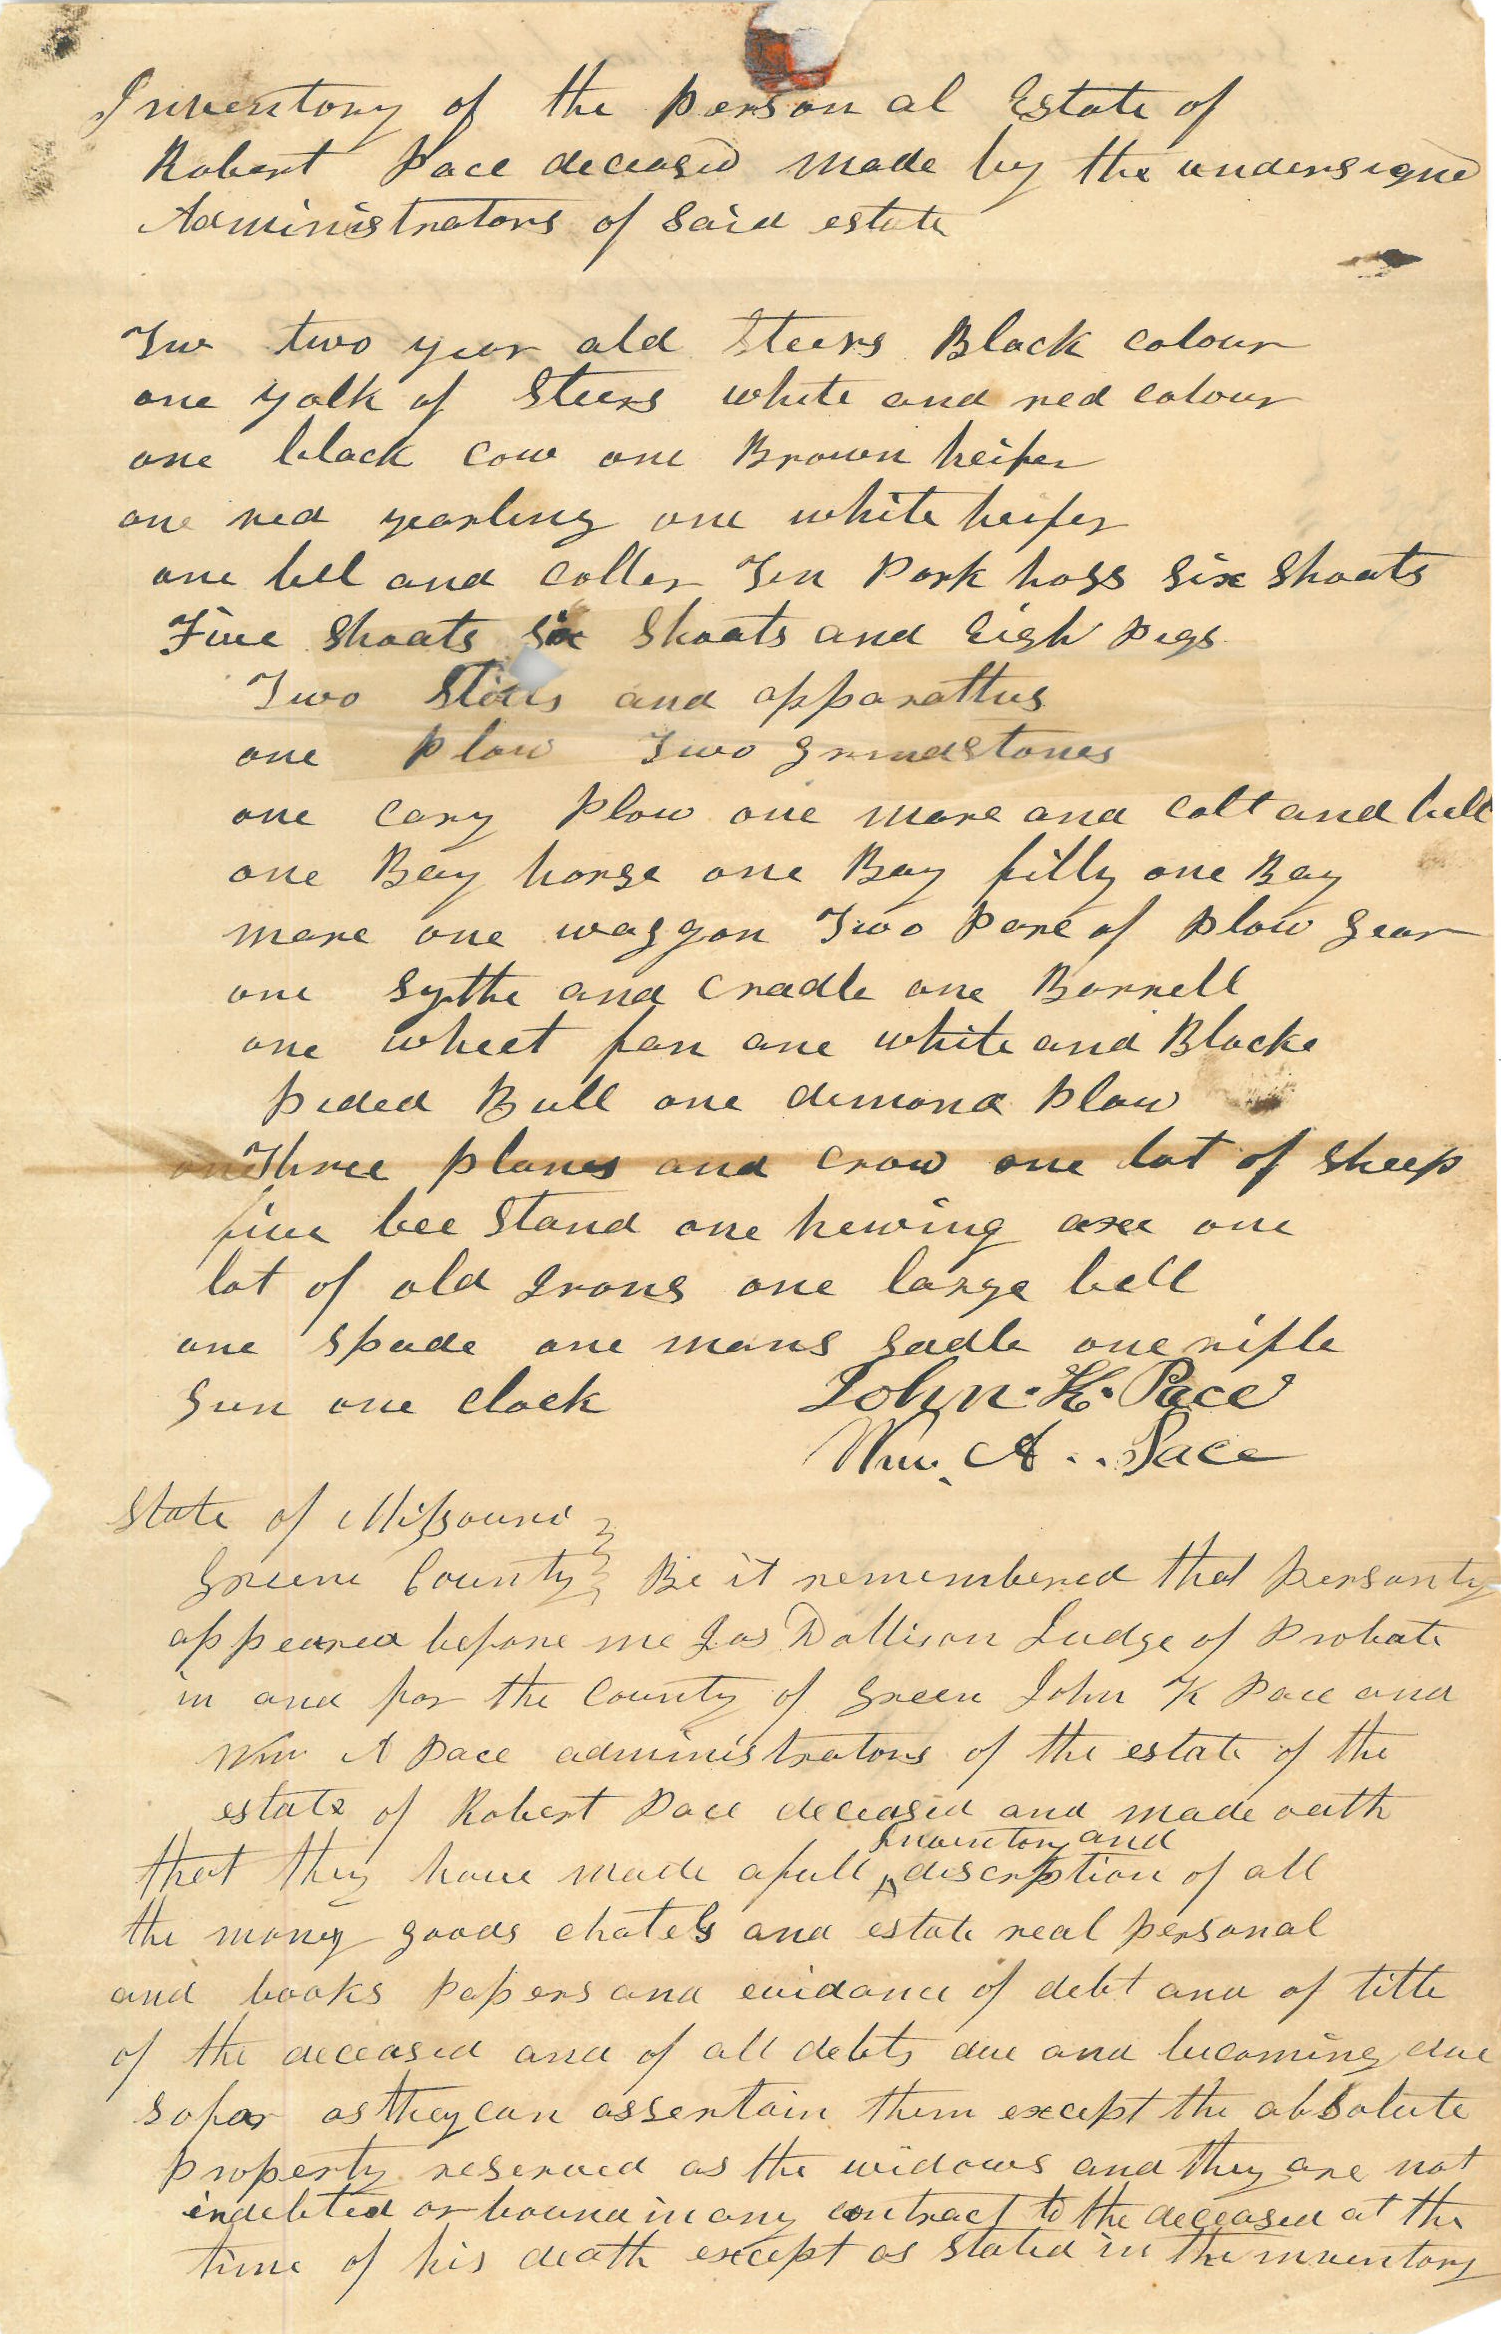 Inventory of the Personal Estate of
Robert Pace deceased made by the undersigned
Administrators of said estate
Two two year old Steers Black colour
one yolk of Steers white and red colour
one black cow one Brown heifer
one red yearling one white heifer
one bell and coller Ten Pork hogs six Shoats
Five Shoats six Shoats and Eigh Pigs
Two Stills and apparattus
one Plow Two Grindstones
one Cary Plow one mare and Colt and bell
one Bay horse one Bay filly one Bay
mare one waggon Two Pare of Plow Gear
one Sythe and Cradle one Barrell
one wheet fan one white and Blacke
pided Bull one dimond Plow
Three planes and crow one lot of Sheep
five bee Stand one hewing axe one
lot of old Irons one large bell
one Spade one mans Sadle one rifle
Gun one Clock John. K. Pace
Wm. A. Pace
State of Missouri
Greene County Be it remembered that personly
appeared before me Jas Dollison Judge of Probate
in and for the County of Green John K Pace and
Wm A Pace administrators of the estate of the
estate of Robert Pace deceased and made oath
Inventory and
that they have made a full discription of all
the money goods chatels and estate real personal
and books papers and evidance of debt and of title
of the deceased and of all debts due and becoming due
so far as they can assertain them except the absolute
property reserved as the widows and they are not
indebted or bound in any contract to the deceased at the
time of his death except as stated in the inventory